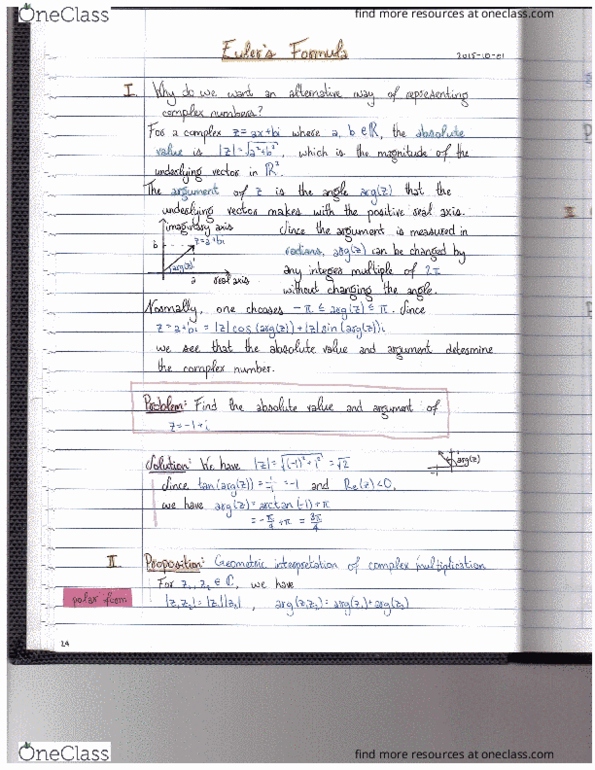 OneClass
find more resources at oneclass.com
Euler's Formula
2015-10-01
I. Why do we want an alternative way of representing
complex numbers?
For a complex z=ax+bi where a, b ∈ ℝ, the absolute
value is |z|=√a²+b², which is the magnitude of the
underlying vector in ℝ².
The argument of z is the angle arg(z) that the
underlying vector makes with the positive real axis.
imaginary axis
b
z=a+bi
arg(z)
a real axis
Since the argument is measured in
radians, arg(z) can be changed by
any integer multiple of 2π
without changing the angle.
Normally, one chooses -π ≤ arg(z) ≤ π. Since
z=a+bi = |z|cos(arg(z))+|z|sin(arg(z))i
we see that the absolute value and argument determine
the complex number.
Problem: Find the absolute value and argument of
z=-1+i
Solution: We have |z|=√(-1)²+1² = √2
arg(z)
-1
Since tan(arg(z)) = 1/-1 = -1 and Re(z)<0,
we have arg(z)= arctan(-1)+π
= -π/4 +π = 3π/4
II. Proposition: Geometric interpretation of complex multiplication
For z₁, z₂ ∈ ℂ, we have
polar form
|z₁z₂| = |z₁||z₂|, arg(z₁z₂) = arg(z₁)+arg(z₂)
24
II
OneClass
find more resources at oneclass.com